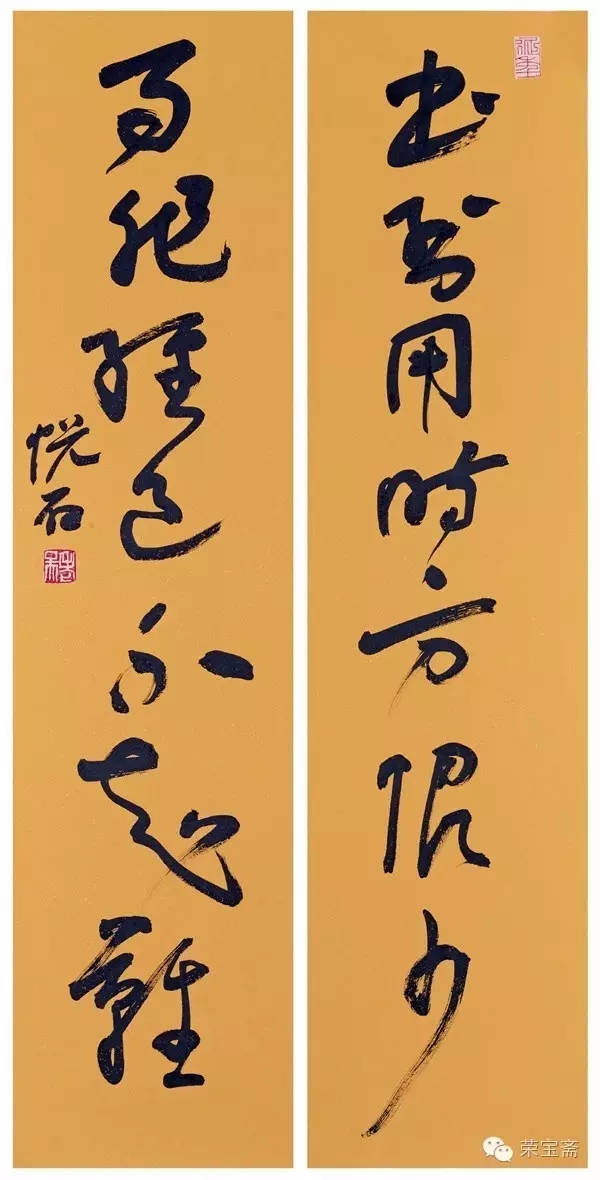 书到用时方恨少
事非經過不知難
悦石
荣宝斋